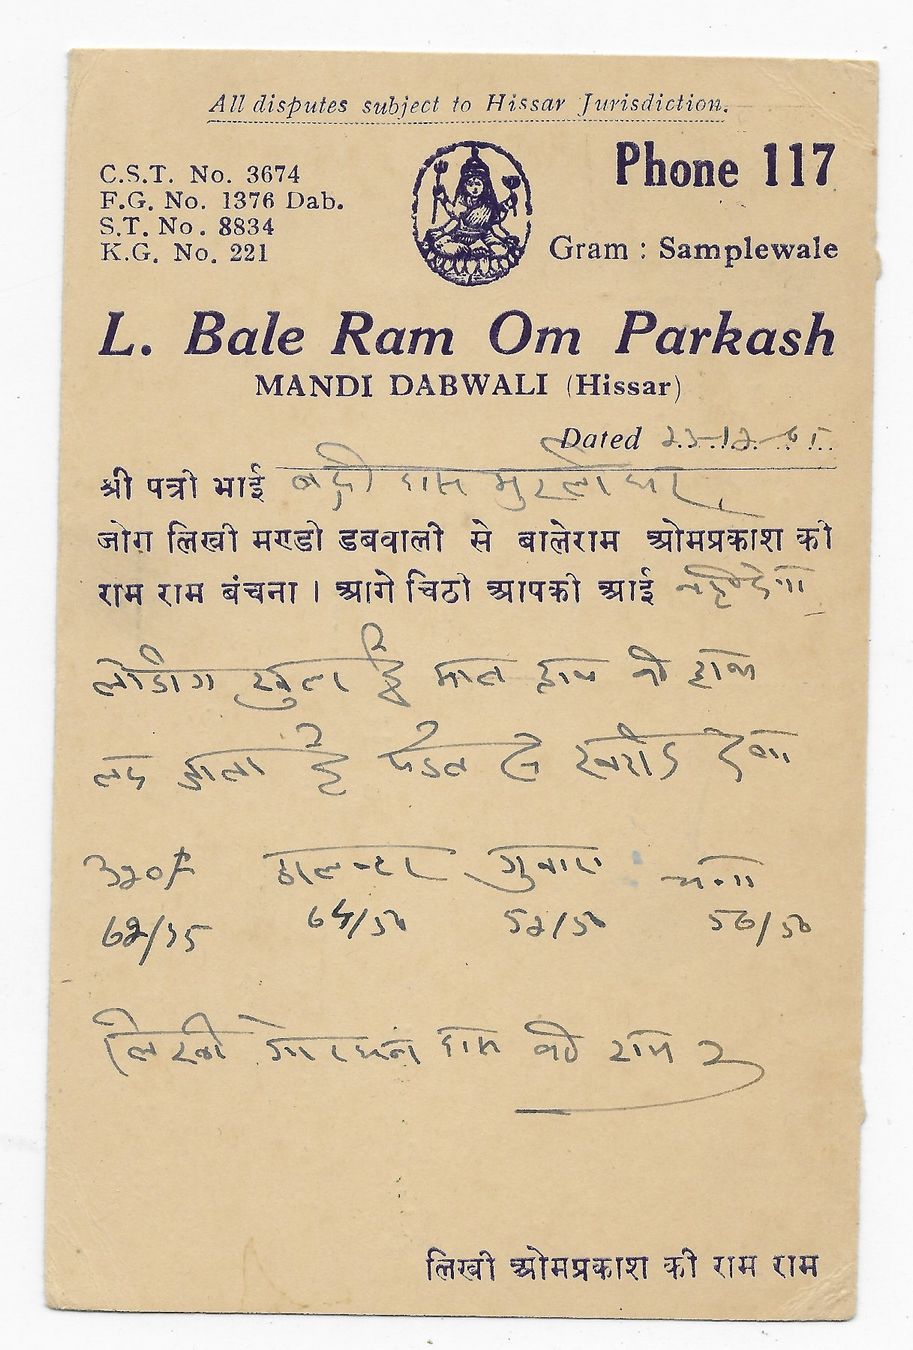 All disputes subject to Hissar Jurisdiction.
C.S.T. No. 3674
F.G. No. 1376 Dab.
S.T. No. 8834
K.G. No. 221
Phone 117
Gram : Samplewale
L. Bale Ram Om Parkash
MANDI DABWALI (Hissar)
Dated 23-12-65
श्री पत्री भाई बद्री दास मुरलीधर
जोग लिखी मण्डी डबवाली से बालेराम ओमप्रकाश की
राम राम बंचना । आगे चिठी आपकी आई
लोडींग खुला है माल हाथ की हाथ
लद जाता है
320F गुवारा
62/75 64/50 52/50 56/50
लिखी गोरधन दास की राम २
लिखी ओमप्रकाश की राम राम